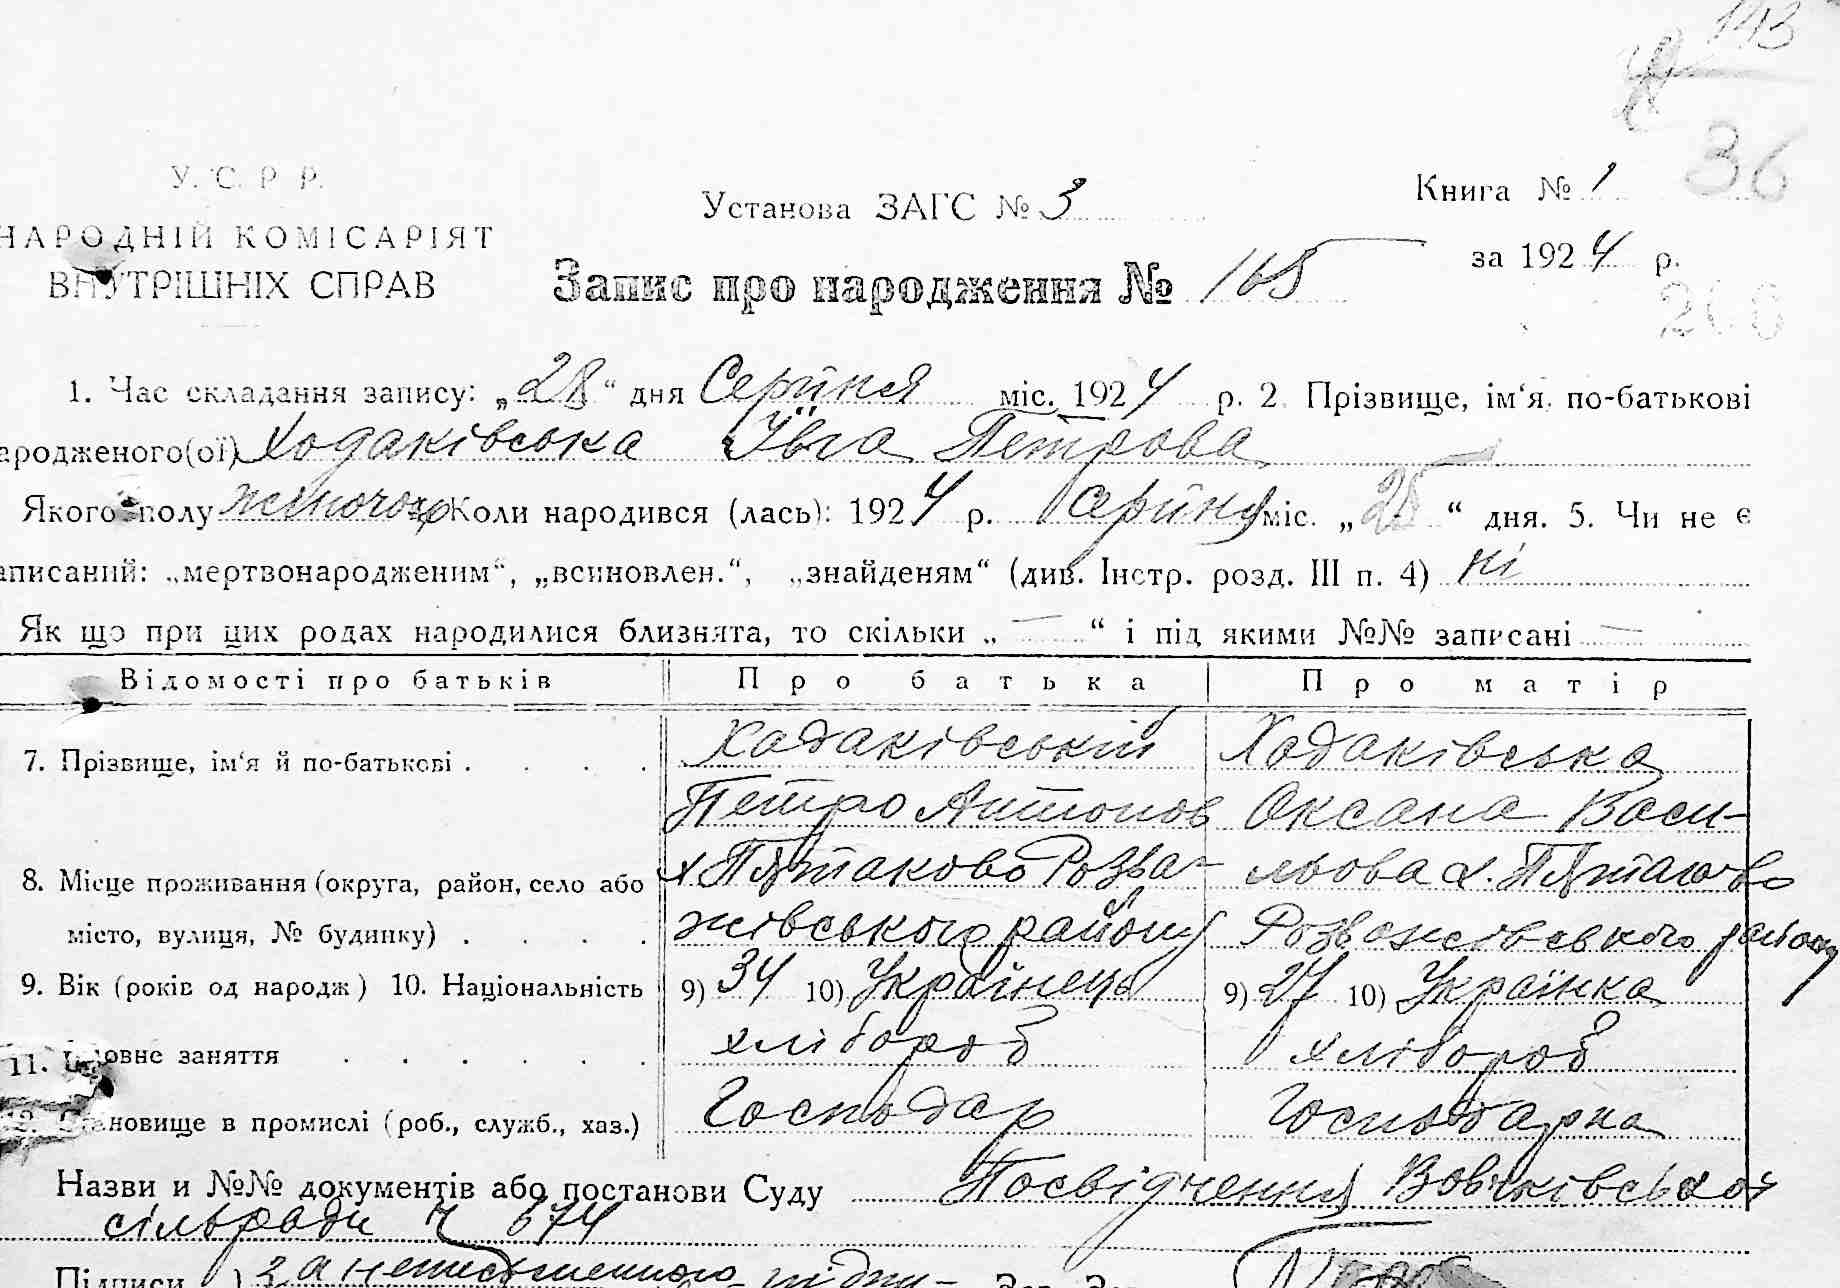 143
36
У. С. Р Р.
Установа ЗАГС № 3
Книга № 1
НАРОДНІЙ КОМІСАРІЯТ
за 1924 р.
ВНУТРІШНІХ СПРАВ
Запис про народження № 165
1. Час складання запису: „28“ дня Серпня міс. 1924 р. 2 Прізвище, ім‘я, по-батькові
ародженого(ої) Ходаківська Івга Петрова
Якого полу жіночого Коли народився (лась): 1924 р. Серпня міс. „25“ дня. 5. Чи не є
аписаний: „мертвонародженим“, „всиновлен.“, „знайденям“ (див. Інстр. розд. III п. 4) ні
Як що при цих родах народилися близнята, то скільки „—“ і під якими №№ записані —
Відомості про батьків Про батька Про матір
7. Прізвище, ім‘я й по-батькові . . . . Ходаківський Ходаківська
Петро Антонов Оксана Васи-
8. Місце проживання (округа, район, село або х Пятаково Розва- льова х. Пятаково
місто, вулиця, № будинку) . . . . жівського району Розважівського району
9. Вік (років од народж) 10. Національність 9) 34 10) Українець 9) 27 10) Українка
11. овне заняття . . . . . . хлібороб хлібороб
12. ановище в промислі (роб., служб., хаз.) Господар Господарка
Назви и №№ документів або постанови Суду Посвідчення Вовчківської
сільради ч 674
Підписи ) за неписьменного підпи-